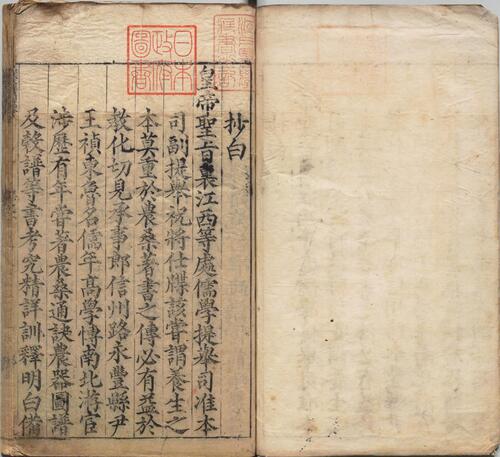 抄白
皇帝聖旨裏江西等處儒學提舉司准本
司副提舉祝將仕牒該嘗謂養生之
本莫重於農桑著書之傳必有益於
教化切見承事郎信州路永豐縣尹
王禎東魯名儒年高學博南北游宦
渉歷有年嘗著農桑通訣農器圖譜
及穀譜等書考究精詳訓釋明白備
日本
政府
圖書